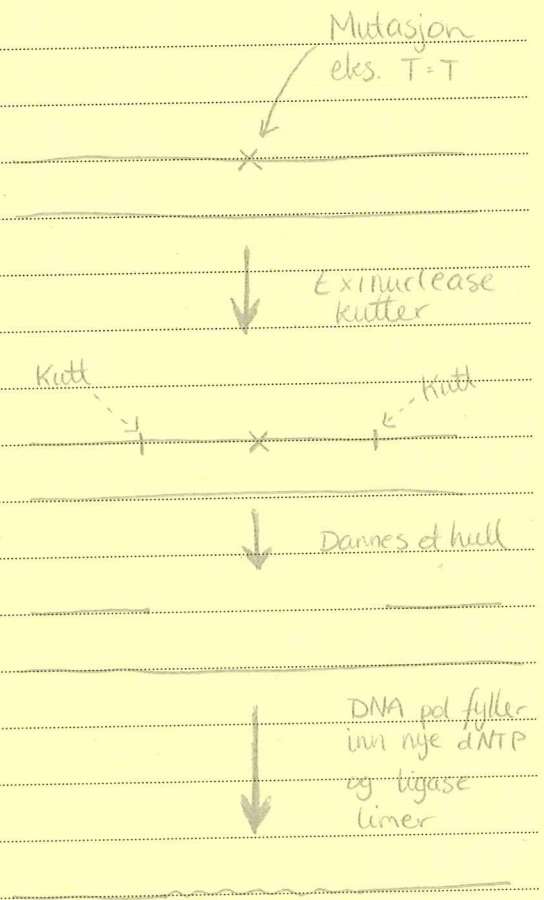 Mutasjon
eks. T=T
Exinuclease
kutter
Kutt
Kutt
Dannes et hull
DNA pol fyller
inn nye dNTP
og ligase
limer